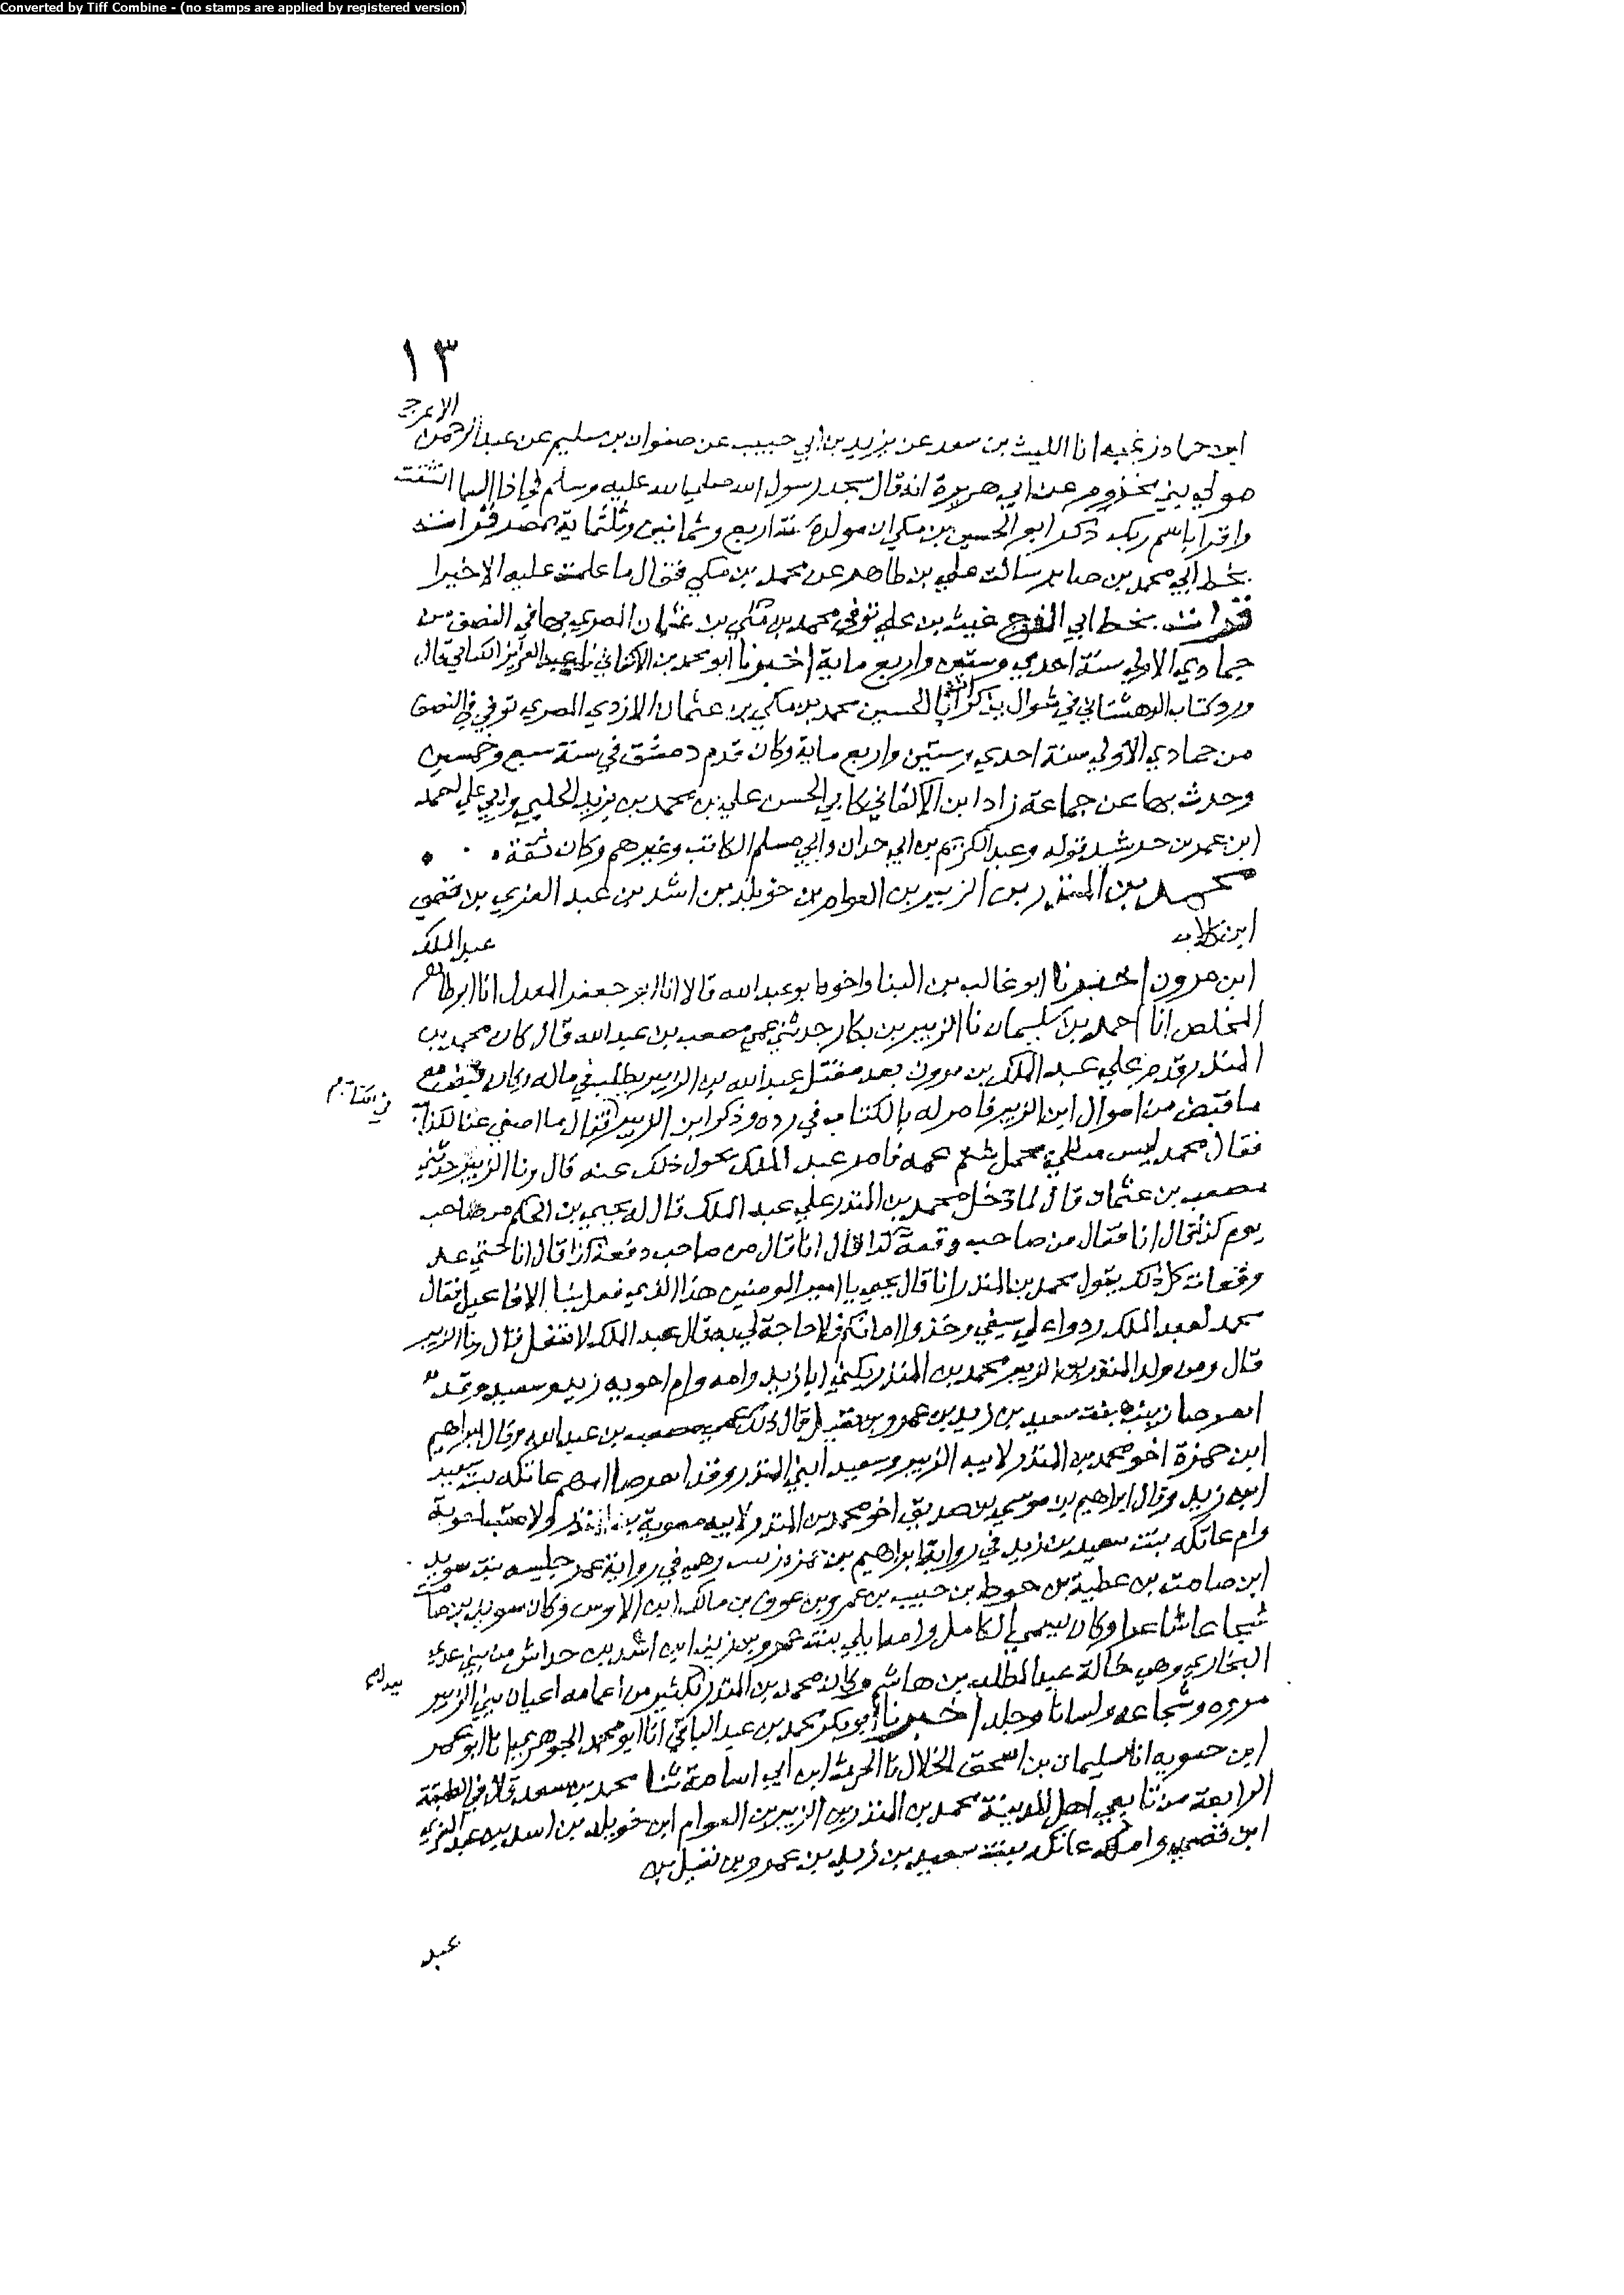 Converted by Tiff Combine - (no stamps are applied by registered version)
١٣
الاعرج
ابن حماد زغبه انا الليث بن سعد عن يزيد بن ابي حبيب عن صفوان بن سليم عن عبد الرحمن
مولي بني مخذوم عن ابي هريرة انه قال سجد رسول الله صلي الله عليه وسلم في اذا السما انشقت
واقرا باسم ربك ذكر ابو الحسين بن مكي ان مولده سنة اربع وثمانين وثلثماية بمصر قرات
بخط ابي محمد بن صابر سالت علي بن طاهر عن محمد بن مكي فقال ما علمت عليه الا خيرا
قرات بخط ابي الفرج غيث بن علي توفي محمد بن مكي بن عثمان المصري بها في النصف من
جمادي الاولي سنة احدي وستين واربع ماية اخبرنا ابو محمد بن الاكفاني نا عبد العزيز الكتاني قال
ورد كتاب الدهستاني في شوال يذكر ان ابا الحسين محمد بن مكي بن عثمان الازدي المصري توفي في النصف
من جمادي الاولي سنة احدي وستين واربع ماية وكان قدم دمشق في سنة سبع وخمسين
وحدث بها عن جماعة زاد ابن الاكفاني كابي الحسن علي بن محمد بن يزيد الحلبي وابي علي احمد
ابن عمر بن خرشيد قوله وعبد الكريم بن ابي جدار وابي مسلم الكاتب وغيرهم وكان ثقة
محمد بن المنذر بن الزبير بن العوام بن خويلد بن اسد بن عبد العزي بن قصي
ابن كلاب
عبد الملك
ابن مرون اخبرنا ابو غالب بن البنا واخوه ابو عبد الله قالا انا ابو جعفر المعدل انا ابو طاهر
المخلص انا احمد بن سليمان نا الزبير بن بكار حدثني عمي مصعب بن عبد الله قال كان محمد بن
المنذر قدم علي عبد الملك بن مرون بعد مقتل عبد الله بن الزبير يطلب في ماله وكان قبض مع
ما قبض من اموال ابن الزبير فامر له بالكتاب في رده وذكر ابن الزبير فقال ما اصغي عنا لكذا
فقال محمد ليس مثلي يحمل شتم عمه فامر عبد الملك بحول ذلك عنه قال ونا الزبير حدثني
مصعب بن عثمان قال لما دخل محمد بن المنذر علي عبد الملك قال له يحيي بن الحكم من صاحب
يوم كذا قال انا فقال من صاحب وقعة كذا قال انا قال من صاحب دفعة كذا قال انا حتي عد
وقعات كل ذلك يقول محمد بن المنذر انا قال يحيي يا امير المومنين هذا الذي فعل بنا الافاعيل فقال
محمد لعبد الملك ردوا علي سيفي وخذوا امانكم فلا حاجة لي به قال عبد الملك لا تفعل قال ونا الزبير
قال ومن ولد المنذر بن الزبير محمد بن المنذر يكني ابا زيد وامه وام اخويه زيد وسعيد
بنت سعيد بن زيد بن عمرو بن نفيل قال ذلك عمي مصعب بن عبد الله وقال ابراهيم
ابن حمزة اخو محمد بن المنذر لابيه الزبير وسعيد ابني المنذر عاتكه بنت سعيد
ابن زيد وقال ابراهيم بن موسي بن صديق اخو محمد بن المنذر لابيه معوية بن المنذر ولا عقب لمعوية
وام عاتكه بنت سعيد بن زيد في رواية ابراهيم بن وهي في رواية جليسه بنت سويد
ابن صامت بن عطية بن حوط بن حبيب بن عمرو بن عوف بن مالك ابن الاوس وكان سويد بن صامت
شجاعا شاعرا وكان يسمي الكامل وامه ليلي بنت عمرو بن زيد ابن اسد بن خداش من بني عدي
النجاري وهي خالة عبد المطلب بن هاشم وكان محمد بن المنذر كثير من اعمامه اعيان بني الزبير
مروه وشجاعه ولسانا وجلدا اخبرنا ابو بكر محمد بن عبد الباقي انا ابو محمد الجوهري انا ابو عمر
ابن حيويه انا سليمان بن اسحق الخلال نا الحرث ابن ابي اسامة ثنا محمد بن سعد قال في الطبقة
الرابعة من تابعي اهل المدينة محمد بن المنذر بن الزبير بن العوام ابن خويلد بن اسد بن عبد العزي
ابن قصي وامه عاتكه بنت سعيد بن زيد بن عمرو بن نفيل بن
عبد